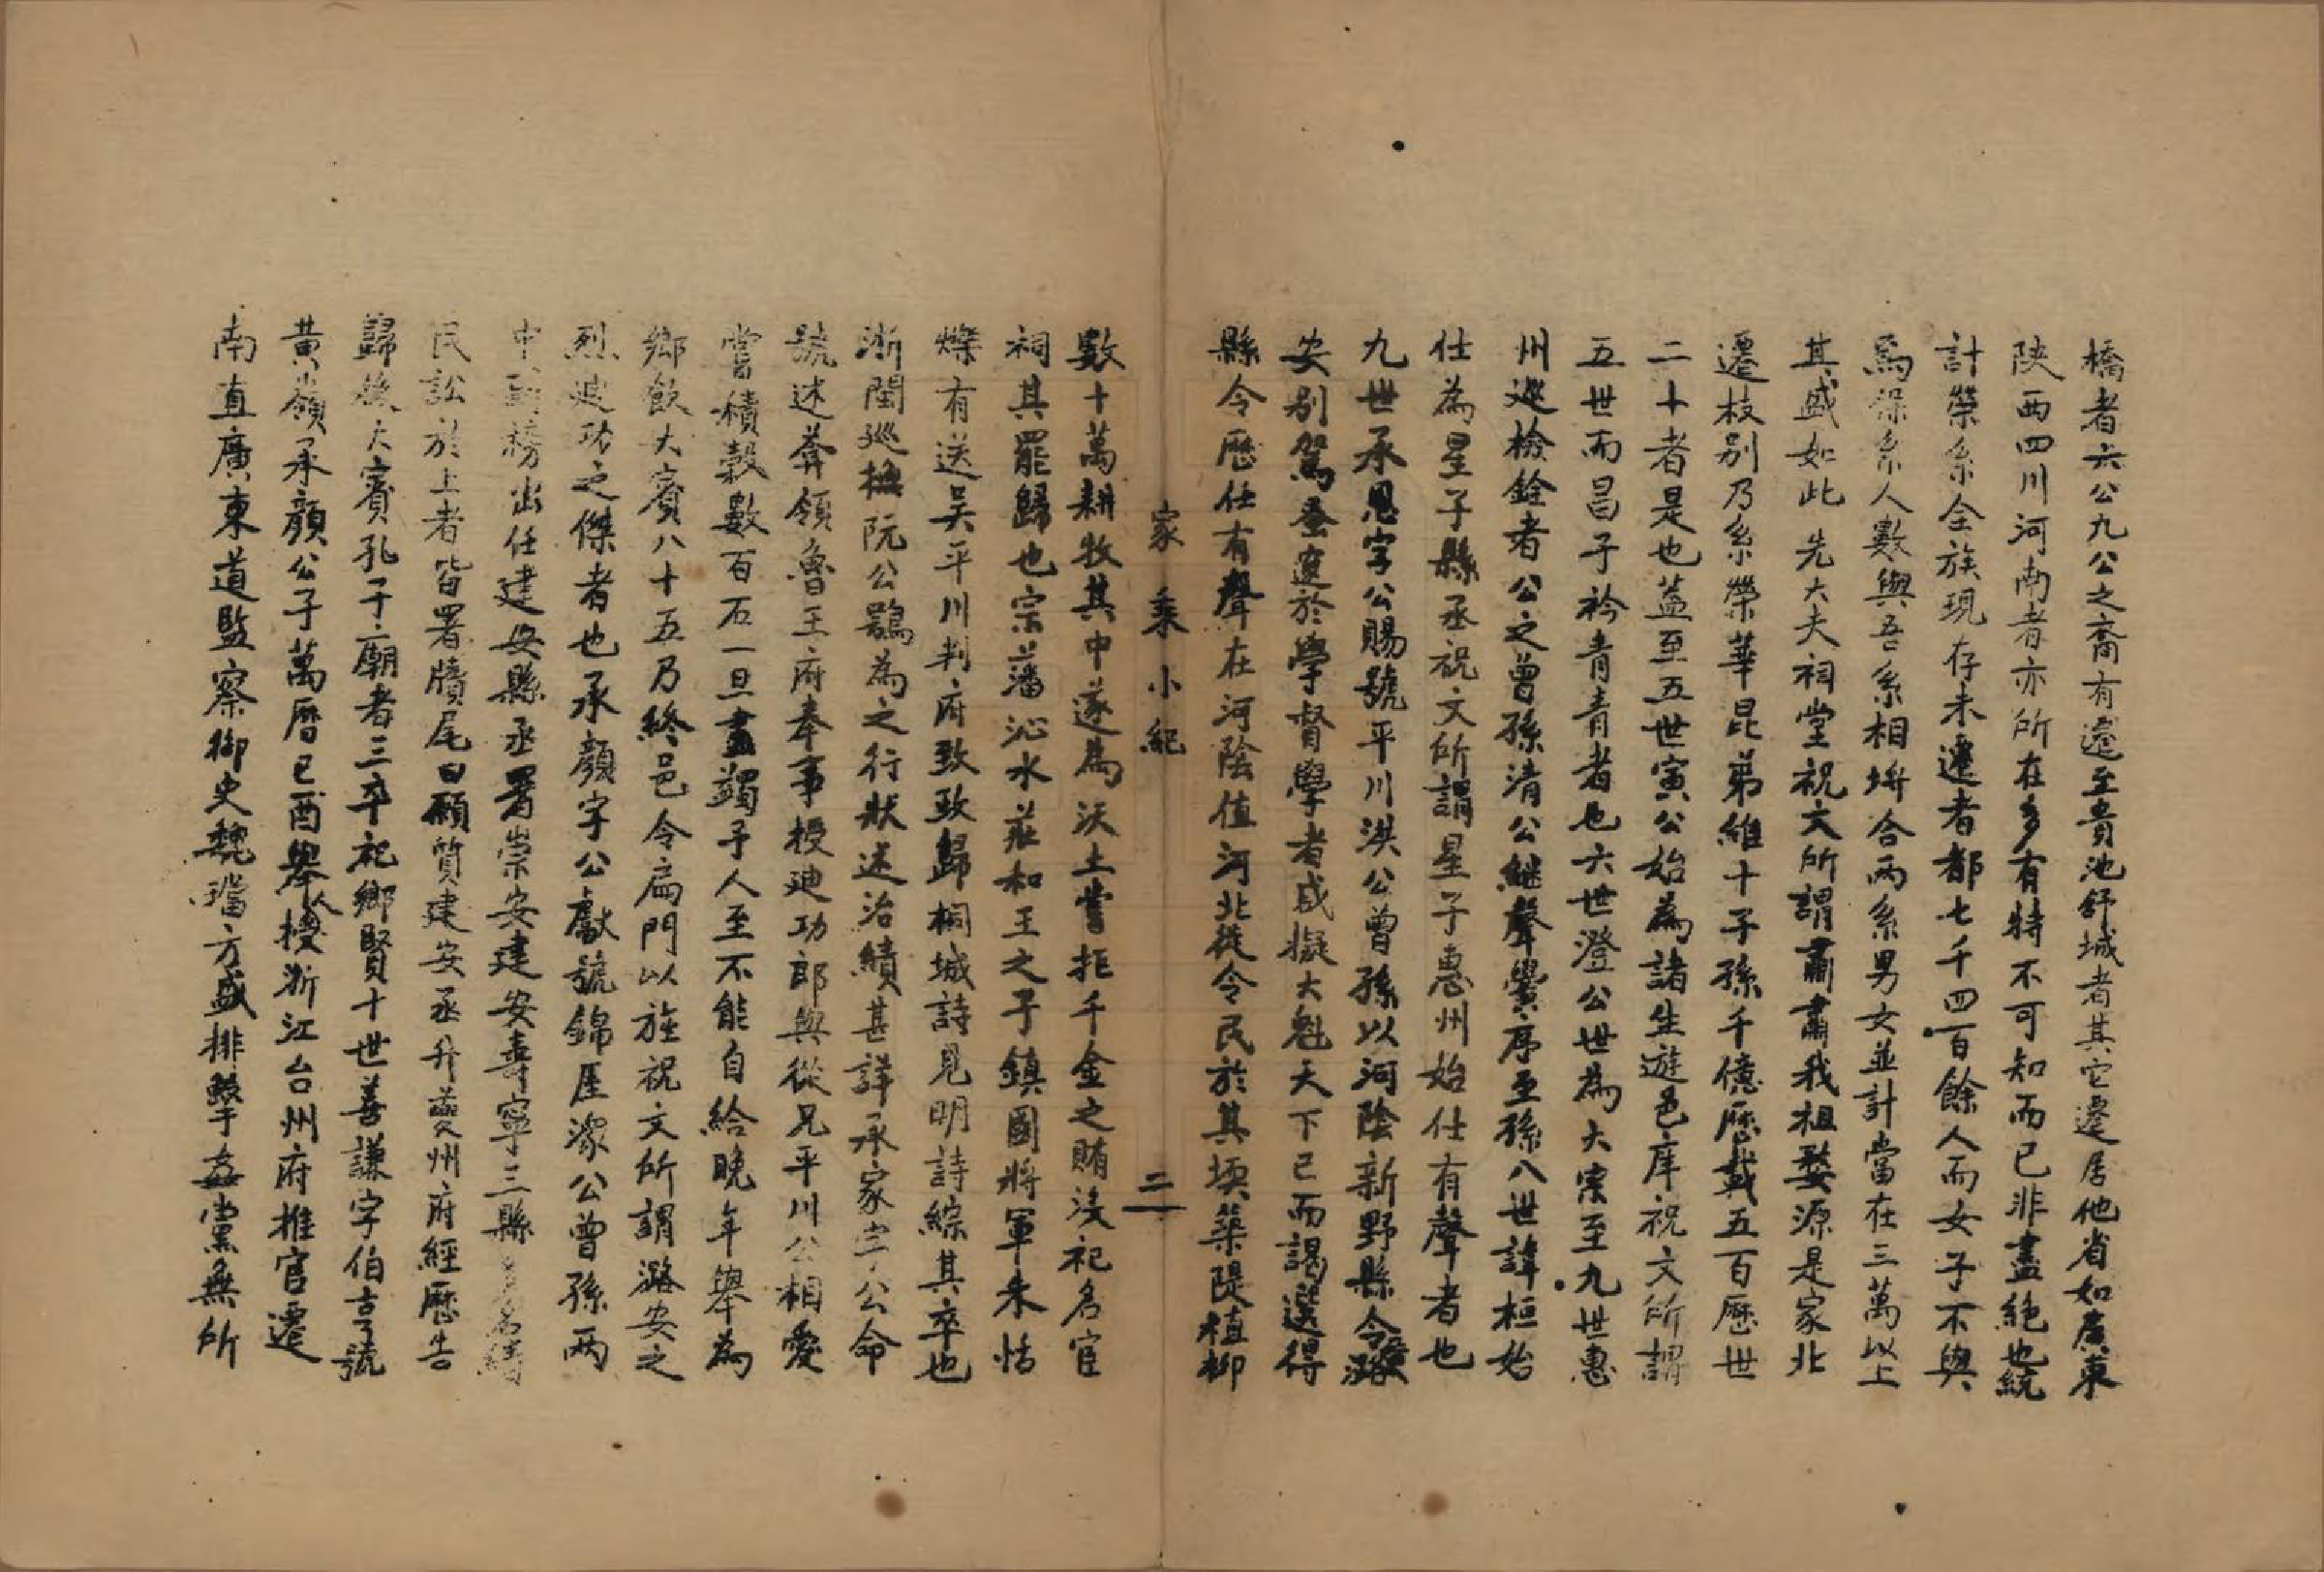 橋者六公九公之裔有遷至貴池舒城者其它遷居他省如廣東
陝西四川河南者亦所在多有特不可知而已非盡絕也統
計榮系全族現存未遷者都七千四百餘人而女子不與
焉保系人數與吾系相埒合兩系男女並計當在三萬以上
其盛如此先大夫祠堂祝文所謂肅肅我祖婺源是家北
遷枝别乃系榮華昆弟維十子孫千億歷載五百歷世
二十者是也蓋至五世寅公始為諸生遊邑庠祝文所謂
五世而昌子衿青青者也六世澄公世為大宗至九世惠
州巡檢銓者公之曾孫清公繼聲黌序至孫八世諱桓始
仕為星子縣丞祝文所謂星子惠州始仕有聲者也
九世承恩字公賜號平川洪公曾孫以河陰新野縣令潞
安别駕蚤邃於學督學者或擬大魁天下已而謁選得
縣令歷任有聲在河陰值河北徙令民於其堧築隄植柳
家乘小紀
二
數十萬耕牧其中遂為沃土嘗拒千金之賄没祀名宦
祠其罷歸也宗藩沁水莊和王之子鎮國將軍朱恬
爍有送吳平川判府致政歸桐城詩見明詩綜其卒也
浙閩巡撫阮公鶚為之行狀述治績甚詳承家字公命
號述葊領魯王府奉事授迪功郎與從兄平川公相愛
嘗積穀數百石一旦盡蠲予人至不能自給晚年舉為
鄉飲大賓八十五乃終邑令扁門以旌祝文所謂潞安之
烈迪功之傑者也承顏字公獻號錦厓濴公曾孫两
中副榜出任建安縣丞署崇安建安壽寧三縣名績
民訟於上者皆署牘尾曰願質建安丞升夔州府經歷告
歸後大賓孔子廟者三卒祀鄉賢十世善謙字伯亨號
黃嶺承顏公子萬曆己酉舉人授浙江台州府推官遷
南直廣東道監察御史魏璫方盛排擊姦黨無所